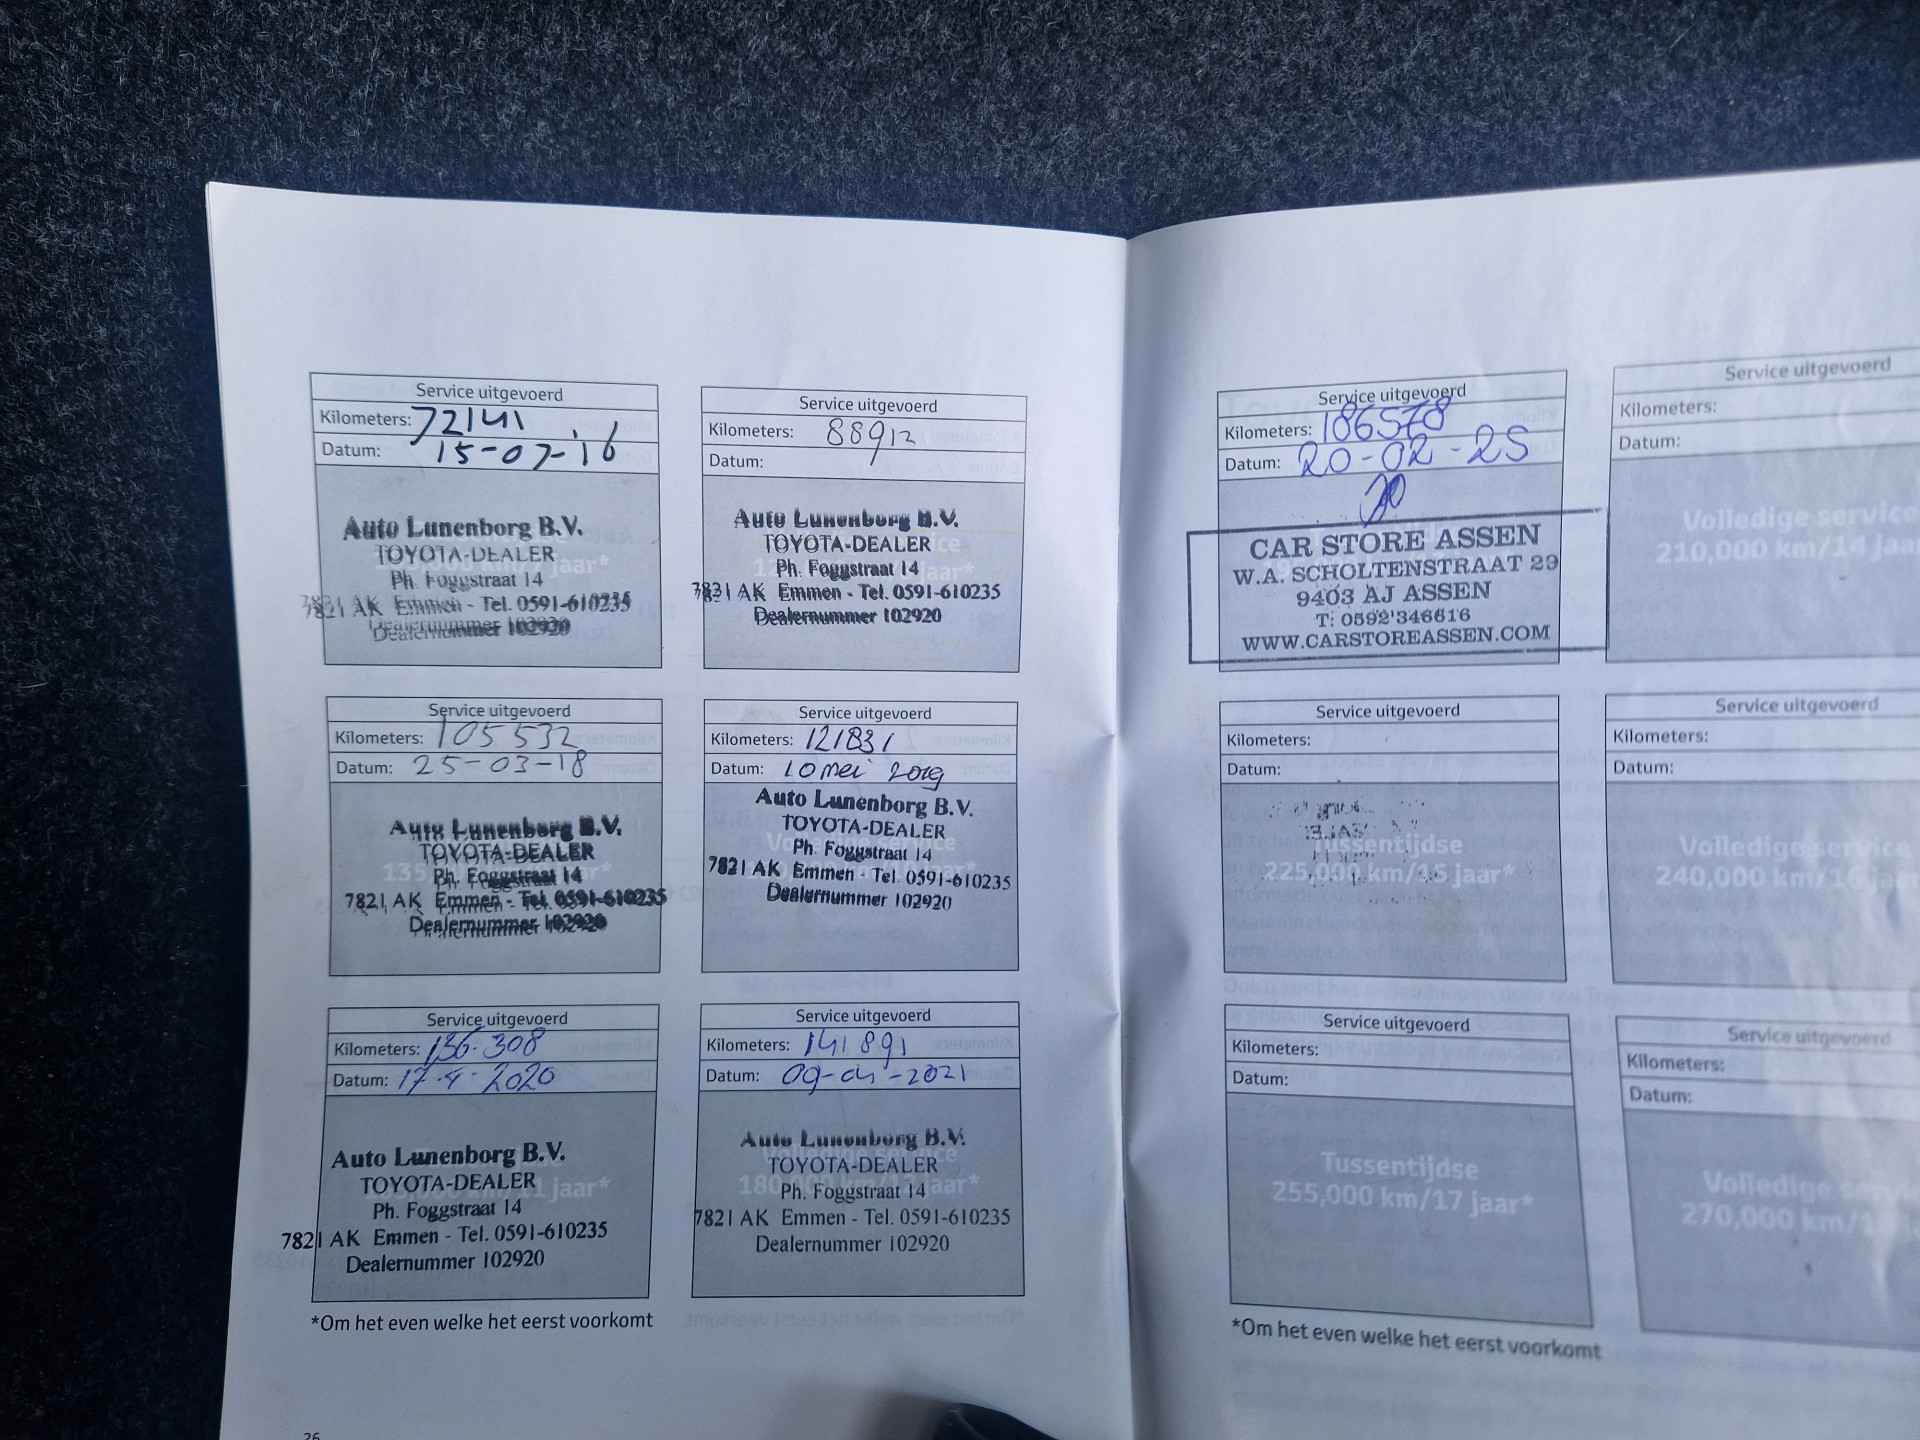 Service uitgevoerd
Kilometers: 72141
Datum: 15-07-'16
Auto Lunenborg B.V.
TOYOTA-DEALER
Ph. Foggstraat 14
7821 AK Emmen - Tel. 0591-610235
Dealernummer 102920
Service uitgevoerd
Kilometers: 88912
Datum:
Auto Lunenborg B.V.
TOYOTA-DEALER
Ph. Foggstraat 14
7821 AK Emmen - Tel. 0591-610235
Dealernummer 102920
Service uitgevoerd
Kilometers: 105532
Datum: 25-03-18
Auto Lunenborg B.V.
TOYOTA-DEALER
Ph. Foggstraat 14
7821 AK Emmen - Tel. 0591-610235
Dealernummer 102920
Service uitgevoerd
Kilometers: 121831
Datum: 10 mei 2019
Auto Lunenborg B.V.
TOYOTA-DEALER
Ph. Foggstraat 14
7821 AK Emmen - Tel. 0591-610235
Dealernummer 102920
Service uitgevoerd
Kilometers: 136.308
Datum: 17-4-2020
Auto Lunenborg B.V.
TOYOTA-DEALER
Ph. Foggstraat 14
7821 AK Emmen - Tel. 0591-610235
Dealernummer 102920
Service uitgevoerd
Kilometers: 141891
Datum: 09-04-2021
Auto Lunenborg B.V.
TOYOTA-DEALER
Ph. Foggstraat 14
7821 AK Emmen - Tel. 0591-610235
Dealernummer 102920
*Om het even welke het eerst voorkomt
26
Service uitgevoerd
Kilometers: 186578
Datum: 20-02-25
CAR STORE ASSEN
W.A. SCHOLTENSTRAAT 29
9403 AJ ASSEN
T: 0592'346616
WWW.CARSTOREASSEN.COM
Service uitgevoerd
Kilometers:
Datum:
Volledige service
210,000 km/14 jaar
Service uitgevoerd
Kilometers:
Datum:
Tussentijdse
225,000 km/15 jaar*
Service uitgevoerd
Kilometers:
Datum:
Volledige service
240,000 km/16 jaar
Service uitgevoerd
Kilometers:
Datum:
Tussentijdse
255,000 km/17 jaar*
Service uitgevoerd
Kilometers:
Datum:
Volledige
270,000 km/
*Om het even welke het eerst voorkomt